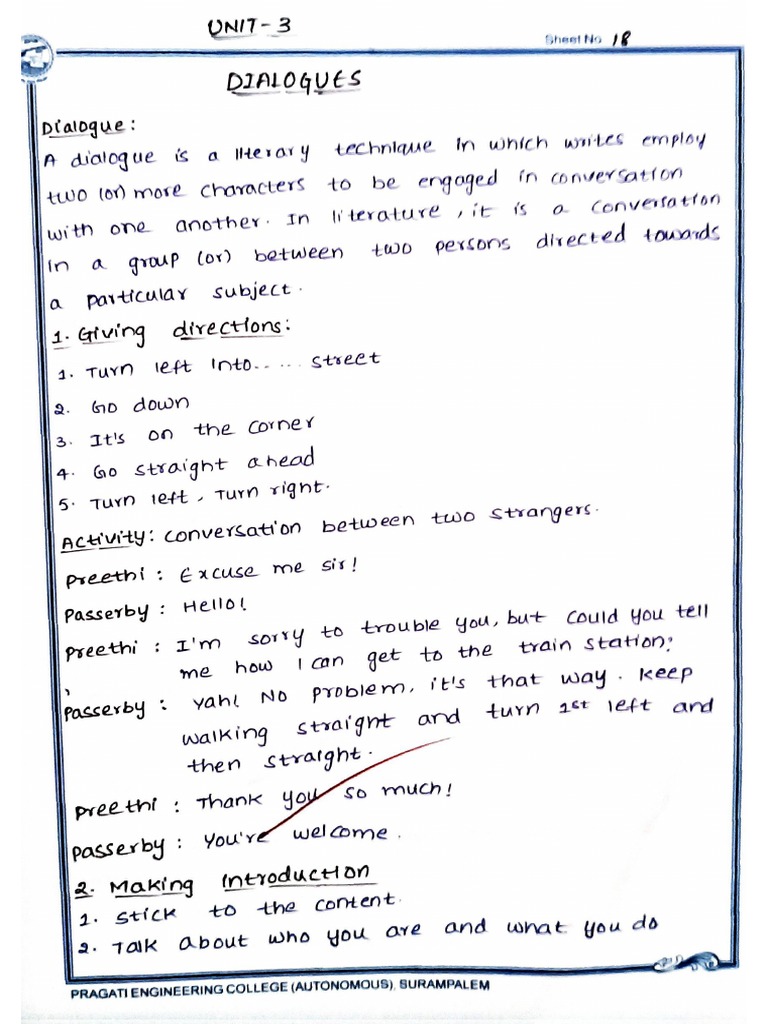 UNIT-3
Sheet No 18
DIALOGUES
Dialogue:
A dialogue is a literary technique in which writes employ
two (or) more characters to be engaged in conversation
with one another. In literature, it is a conversation
in a group (or) between two persons directed towards
a particular subject.
1. Giving directions:
1. Turn left into..... street
2. Go down
3. It's on the corner
4. Go straight ahead
5. Turn left, Turn right.
Activity: conversation between two strangers.
Preethi : Excuse me sir!
Passerby : Hello!
Preethi : I'm sorry to trouble you, but could you tell
me how I can get to the train station?
Passerby : Yah! No problem, it's that way. Keep
walking straight and turn 1st left and
then straight.
Preethi : Thank you so much!
Passerby : You're welcome.
2. Making Introduction
1. Stick to the content.
2. Talk about who you are and what you do
PRAGATI ENGINEERING COLLEGE (AUTONOMOUS), SURAMPALEM